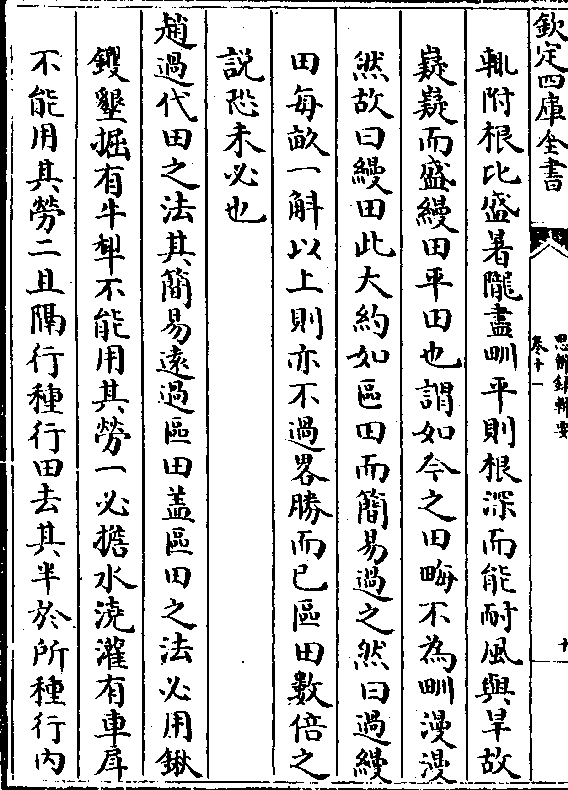 欽定四庫全書
思辨錄輯要
卷十一
十
輒附根比盛暑隴盡甽平則根深而能耐風與旱故
嶷嶷而盛縵田平田也謂如今之田畮不為甽漫漫
然故曰縵田此大約如區田而簡易過之然曰過縵
田每畝一斛以上則亦不過畧勝而已區田數倍之
説恐未必也
趙過代田之法其簡易遠過區田盖區田之法必用鍬
钁墾掘有牛犂不能用其勞一必擔水澆灌有車戽
不能用其勞二且隔行種行田去其半於所種行内